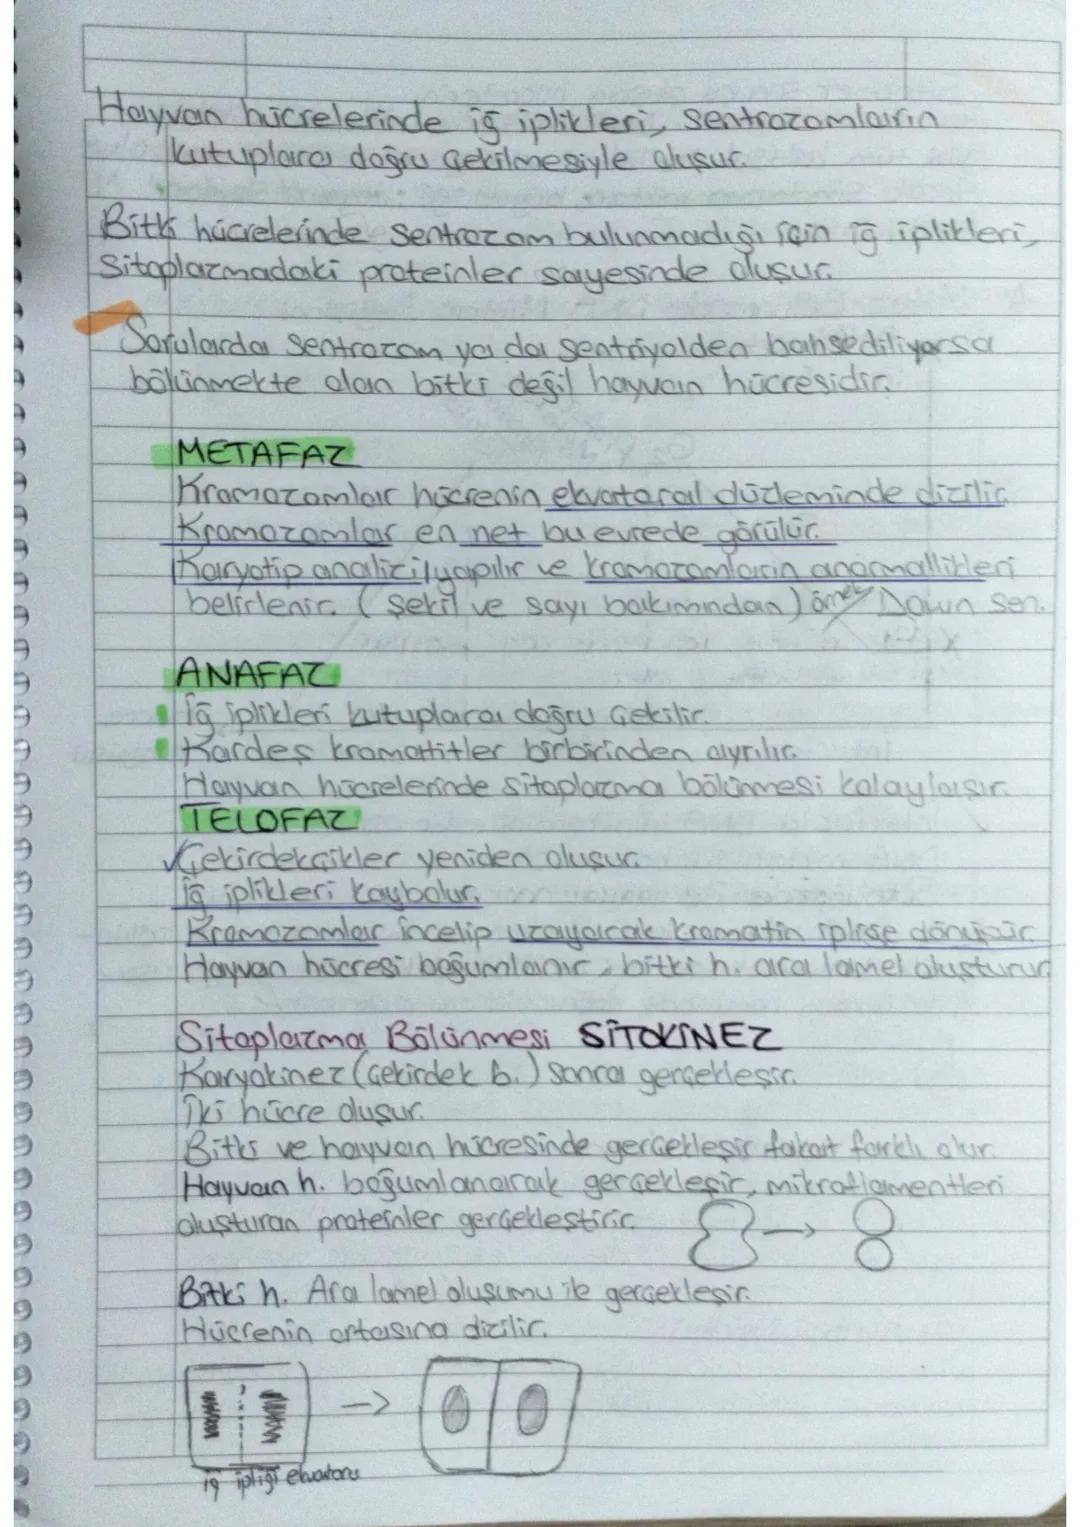 Hayvan hücrelerinde iğ iplikleri, sentrozomların
kutuplara doğru çekilmesiyle oluşur.
Bitki hücrelerinde sentrozom bulunmadığı için iğ iplikleri,
Sitoplazmadaki proteinler sayesinde oluşur.
Sorularda sentrozom ya da sentriyolden bahsediliyorsa
bölünmekte olan bitki değil hayvan hücresidir.
METAFAZ
Kromozomlar hücrenin ekvatoral düzleminde dizilir.
Kromozomlar en net bu evrede görülür.
Karyotip analizi yapılır ve kromozomların anormallikleri
belirlenir. (şekil ve sayı bakımından) örnek Down sen.
ANAFAZ
İğ iplikleri kutuplara doğru çekilir.
Kardeş kromatitler birbirinden ayrılır.
Hayvan hücrelerinde sitoplazma bölünmesi kolaylaşır.
TELOFAZ
Çekirdekçikler yeniden oluşur.
İğ iplikleri kaybolur.
Kromozomlar incelip uzayarak kromatin ipliğe dönüşür.
Hayvan hücresi boğumlanır, bitki h. ara lamel oluşturur
Sitoplazma Bölünmesi SİTOKİNEZ
Karyokinez (Çekirdek b.) sonra gerçekleşir.
İki hücre oluşur.
Bitki ve hayvan hücresinde gerçekleşir fakat farklı olur.
Hayvan h. boğumlanarak gerçekleşir, mikroflamentleri
oluşturan proteinler gerçekleştirir.
Bitki h. Ara lamel oluşumu ile gerçekleşir.
Hücrenin ortasına dizilir.
iğ ipliği ekvatoru